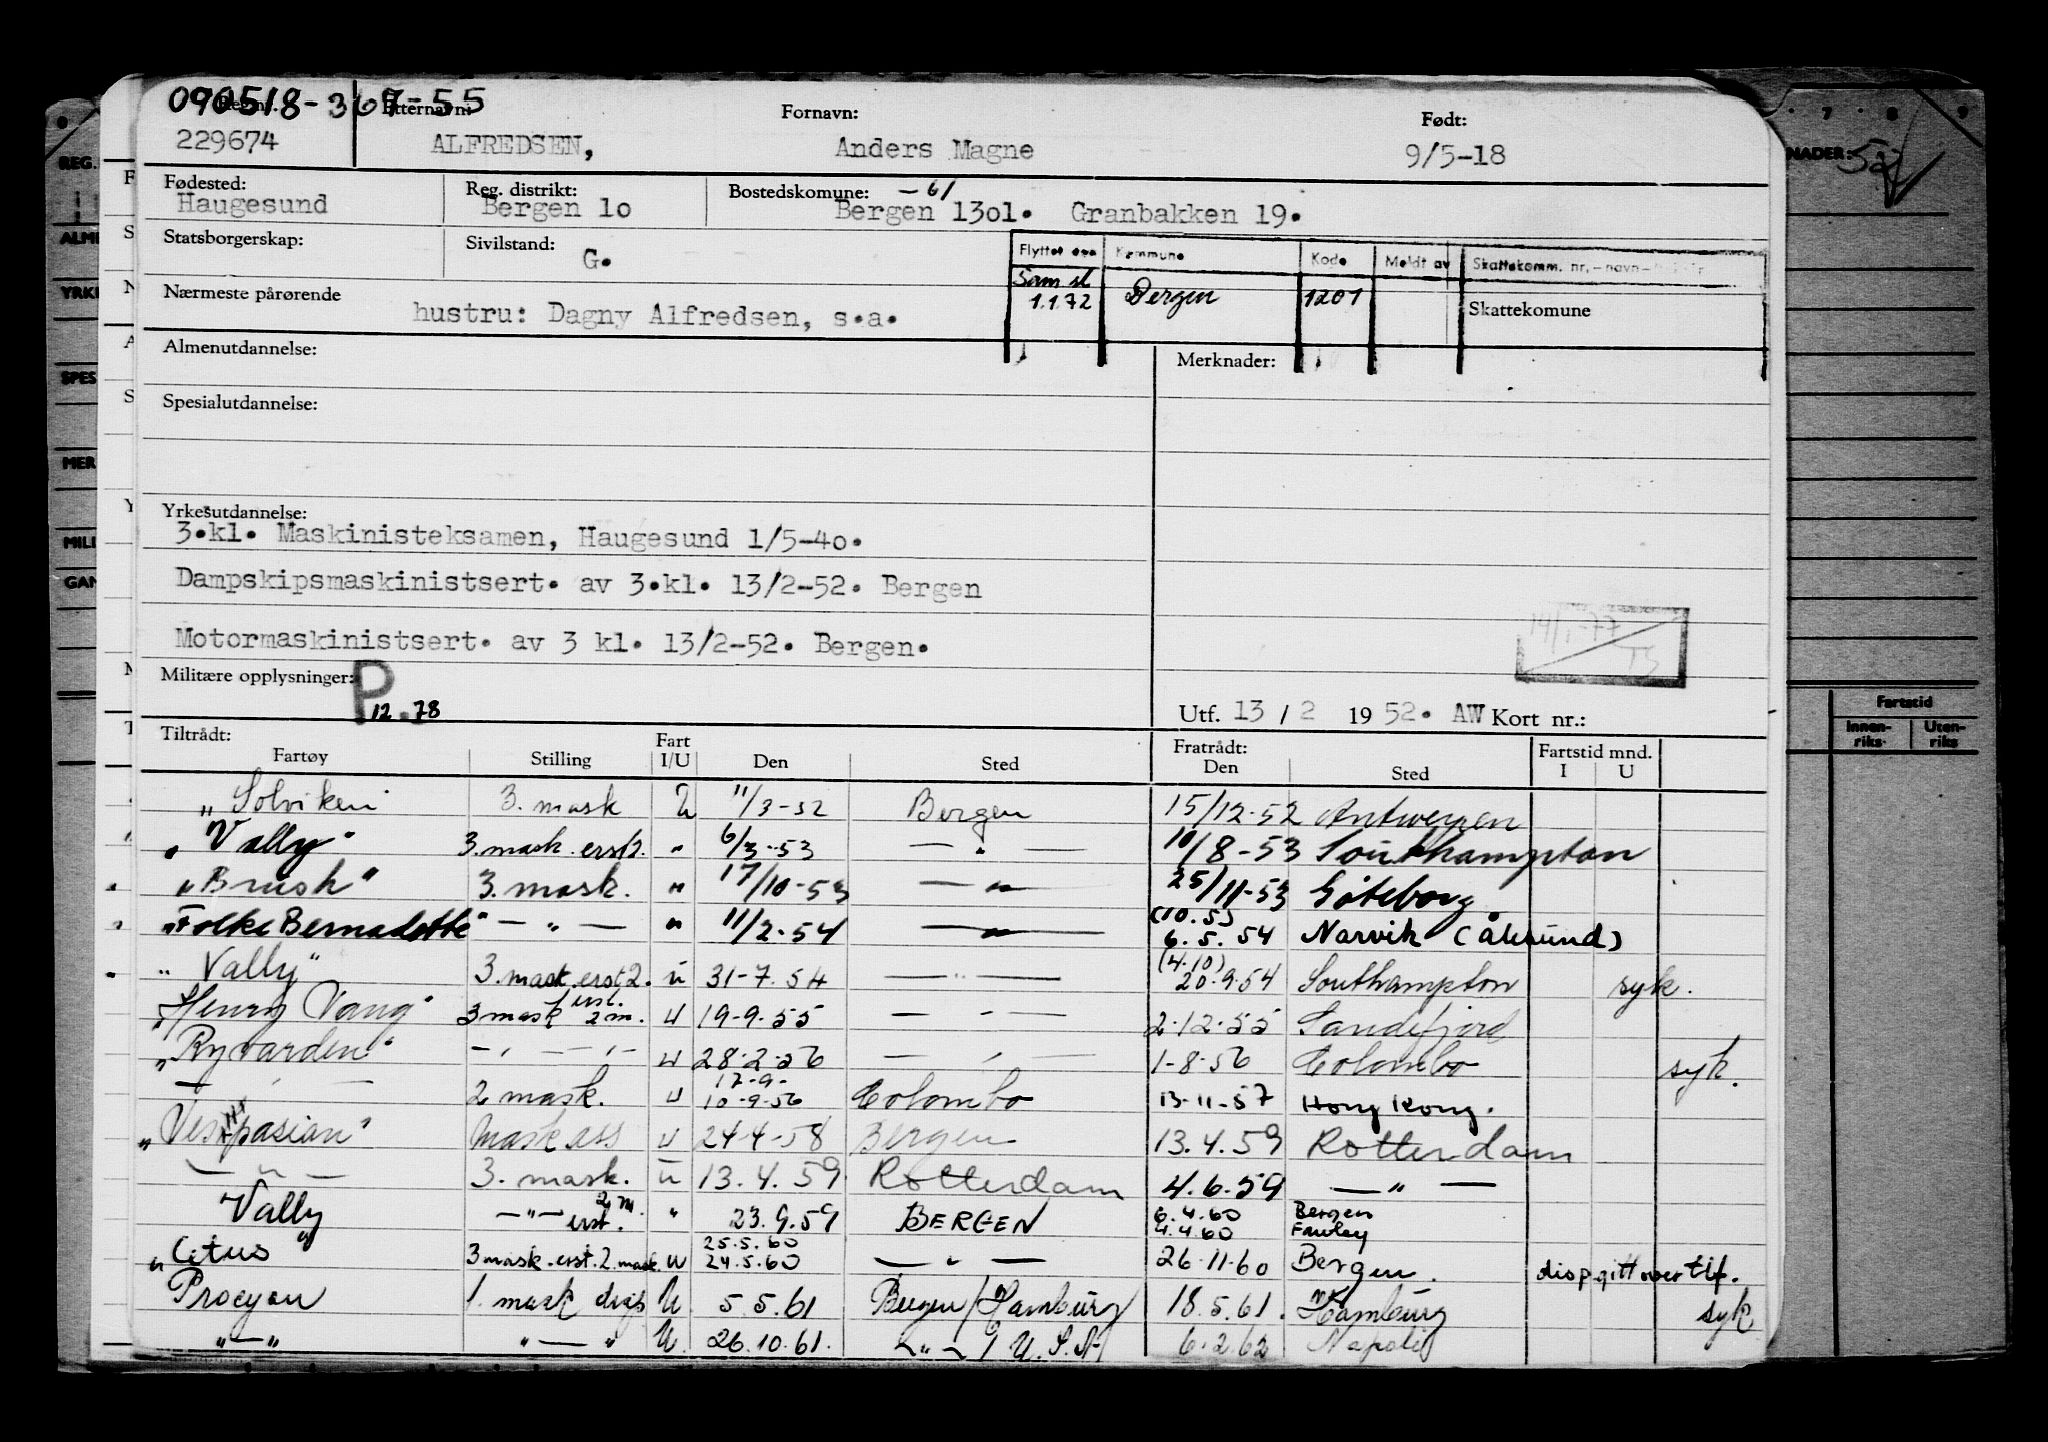 090518-369-55
Reg. nr. Etternavn: Fornavn: Født:
229674 ALFREDSEN, Anders Magne 9/5-18
Fødested: Reg. distrikt: Bostedskomune: -61
Haugesund Bergen 10 Bergen 1301. Granbakken 19.
Statsborgerskap: Sivilstand: G.
Flyttet den Kommune Kode Meldt av Skattekomm. nr.-navn-
Sam st 1.1.72 Bergen 1201
Nærmeste pårørende Skattekomune
hustru: Dagny Alfredsen, s.a.
Almenutdannelse: Merknader:
Spesialutdannelse:
Yrkesutdannelse:
3.kl. Maskinisteksamen, Haugesund 1/5-40.
Dampskipsmaskinistsert. av 3.kl. 13/2-52. Bergen
Motormaskinistsert. av 3 kl. 13/2-52. Bergen.
14/1-77
TS
Militære opplysninger: P 12.78
Utf. 13 / 2 1952. AW Kort nr.:
Tiltrådt: Fratrådt: Fartstid mnd.
Fartøy Stilling Fart I/U Den Sted Den Sted I U
"Solviken" 3. mask U 11/3-52 Bergen 15/12-52 Antwerpen
"Vally" 3. mask. erst2. " 6/3-53 — " — 11/8-53 Southampton
"Brush" 3. mask. " 17/10-53 — " — 25/11-53 Gøteborg
"Folke Bernadotte" — " — " 11/2-54 — " — (10.5) 6.5.54 Narvik (Ålesund)
"Vally" 3. mask. erst 2. u 31-7.54 — " — (4.10) 20.9.54 Southampton syk.
"Henry Vang" 3 mask erst. 2 m. U 19-9.55 — " — 2.12.55 Sandefjord
"Ryvarden" — " — " — U 28.2.56 — " — 1-8-56 Colombo syk.
— " — 2 mask. U 17-9- 10-9-56 Colombo 13-11-57 Hong Kong.
"Vespasian" Mask ass U 24-4-58 Bergen 13.4.59 Rotterdam
— " — 3. mask. U 13.4.59 Rotterdam 4.6.59 — " —
Vally — " — erst. 2 m. " 23.9.59 BERGEN 6.4.60 Bergen
4.4.60 Fawley
"Cetus" 3 mask. erst. 2. mask. U 25.5.60 24.5.60 — " — 26.11.60 Bergen. disp gitt over tlf.
Procyon 1. mask disp U 5.5.61 Bergen/Hamburg 18.5.61. Hamburg syk
" — " " — " U 26.10.61. — " — / U.S.A 6.2.62 Napoli
REG.
ALM
YRK
SPES
MER
MILI
GAN
7 8 9
NADER: 52
Fartstid
Innen-riks Uten-riks